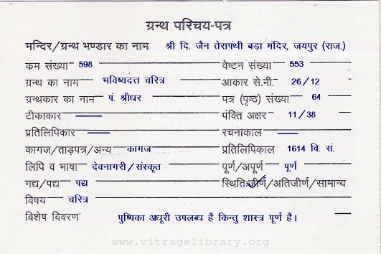 ग्रन्थ परिचय-पत्र
मन्दिर/ग्रन्थ भण्डार का नाम श्री दि. जैन तेरापंथी बडा मंदिर, जयपुर (राज.)
क्रम संख्या 598 वेष्टन संख्या 553
ग्रन्थ का नाम भविष्यदत्त चरित्र आकार से.मी. 26/12
ग्रन्थकार का नाम पं. श्रीधर पत्र (पृष्ठ) संख्या 64
टीकाकार पंक्ति अक्षर 11/38
प्रतिलिपिकार रचनाकाल
कागज/ताड़पत्र/अन्य कागज प्रतिलिपिकाल 1614 वि. सं.
लिपि व भाषा देवनागरी/संस्कृत पूर्ण/अपूर्ण पूर्ण
गद्य/पद्य पद्य स्थिति जीर्ण/अतिजीर्ण/सामान्य
विषय चरित्र
विशेष विवरण पुष्पिका अधूरी उपलब्ध है किन्तु शास्त्र पूर्ण है।
www.vitragelibrary.org